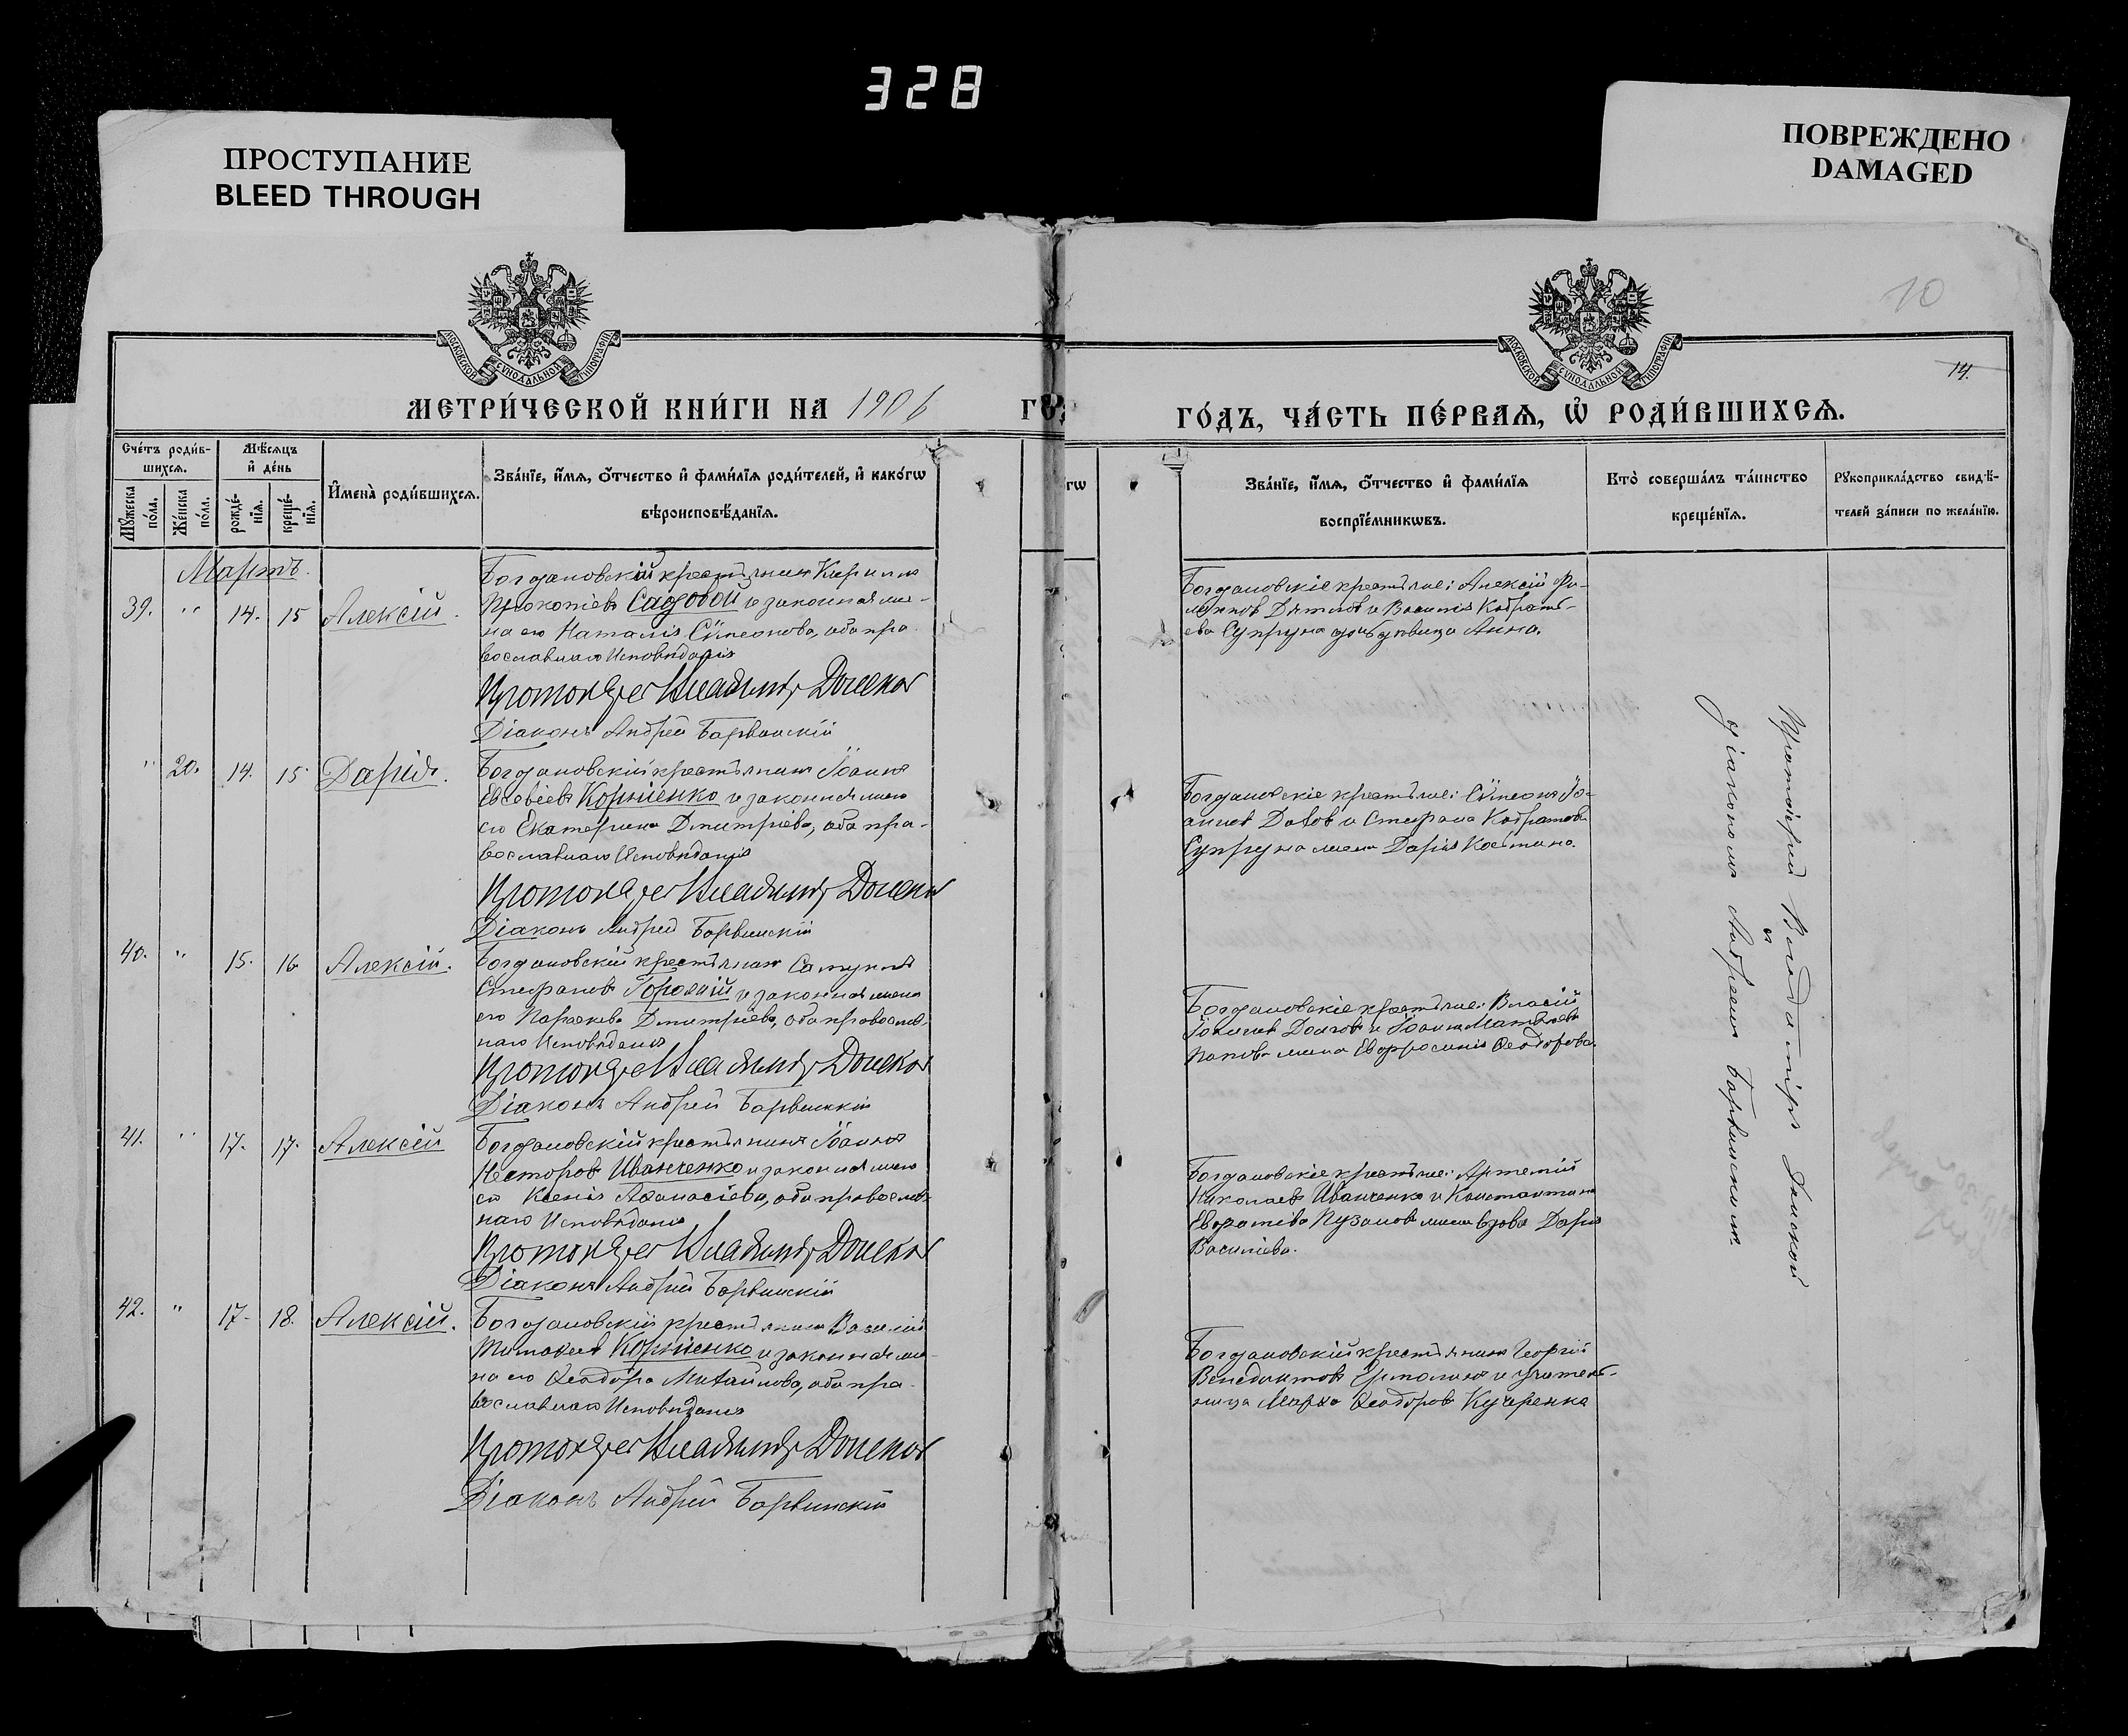 328
ПРОСТУПАНИЕ
BLEED THROUGH
ПОВРЕЖДЕНО
DAMAGED
10
МОСКОВСКОЙ СУНОДАЛЬНОЙ ТИПОГРАФІИ
МОСКОВСКОЙ СУНОДАЛЬНОЙ ТИПОГРАФІИ
14.
МЕТРИ́ЧЕСКОЙ КНИ́ГИ НА 1906
ГО́ДЪ, ЧА́СТЬ ПЕ́РВАѦ, Ѡ҆ РОДИ́ВШИХСѦ.
Сче́тъ роди́в-
шихсѧ.
Мꙋ́жеска по́ла.
Же́нска по́ла.
Мѣ́сѧцъ
и҆ де́нь
рожде́-
нїѧ.
креще́-
нїѧ.
И҆мена̀ роди́вшихсѧ.
Зва́нїе, и҆́мѧ, ѻ҆́тчество и҆ фами́лїѧ роди́телей, и҆ како́гѡ
вѣроисповѣ́данїѧ.
Зва́нїе, и҆́мѧ, ѻ҆́тчество и҆ фами́лїѧ
воспрїе́мникѡвъ.
Кто̀ соверша́лъ та́инство
креще́нїѧ.
Рꙋкоприкла́дство свидѣ́-
телей за́писи по жела́нїю.
Мартъ.
39. " 14. 15 Алексій.
Богдановскій крестьянинъ Кирилъ
Прокопіевъ Садовой и законная же-
на его Наталія Сѵмеонова, оба пра-
вославнаго исповѣданія
Протоіерей Владиміръ Донской
Діаконъ Андрей Барвинскій
Богдановскіе крестьяне: Алексій Фи-
липповъ Дятловъ и Василія Кодратъ-
ева Супруна дочь дѣвица Анна.
" 20. 14. 15. Дарія.
Богдановскій крестьянинъ Іоаннъ
Евсевіевъ Корніенко и законная жена
его Екатерина Дмитріева, оба пра-
вославнаго исповѣданія
Протоіерей Владиміръ Донской
Діаконъ Андрей Барвинскій
Богдановскіе крестьяне: Сѵмеонъ Іо-
анновъ и Стефана Кодратова
Супруна жена Дарія
40. " 15. 16 Алексій.
Богдановскій крестьянинъ Самуилъ
Стефановъ Горохій и законная жена
его Параскева Дмитріева, оба православ-
наго исповѣданія
Протоіерей Владиміръ Донской
Діаконъ Андрей Барвинскій
Богдановскіе крестьяне: Власій
Іоанновъ Долговъ и Іоанна Матвѣева
Попова жена Евфросинія Ѳеодорова.
41. " 17. 17. Алексій
Богдановскій крестьянинъ Іоаннъ
Несторовъ Иванченко и законная жена
его Ксенія Аѳанасіева, оба православ-
наго исповѣданія
Протоіерей Владиміръ Донской
Діаконъ Андрей Барвинскій
Богдановскіе крестьяне: Артемій
Николаевъ Иванченко и Константина
Пузанова жена вдова Дарія
Василіева.
42. " 17. 18. Алексій.
Богдановскій крестьянинъ Василій
Тимоѳеевъ Корніенко и законная же-
на его Ѳеодора Михайлова, оба пра-
вославнаго исповѣданія
Протоіерей Владиміръ Донской
Діаконъ Андрей Барвинскій
Богдановскій крестьянинъ Георгій
Венедиктовъ Ермолинъ и учитель-
ница Марѳа Ѳеодорова Кучеренко
Протоіерей Владиміръ Донской
съ
діакономъ Андреемъ Барвинскимъ.